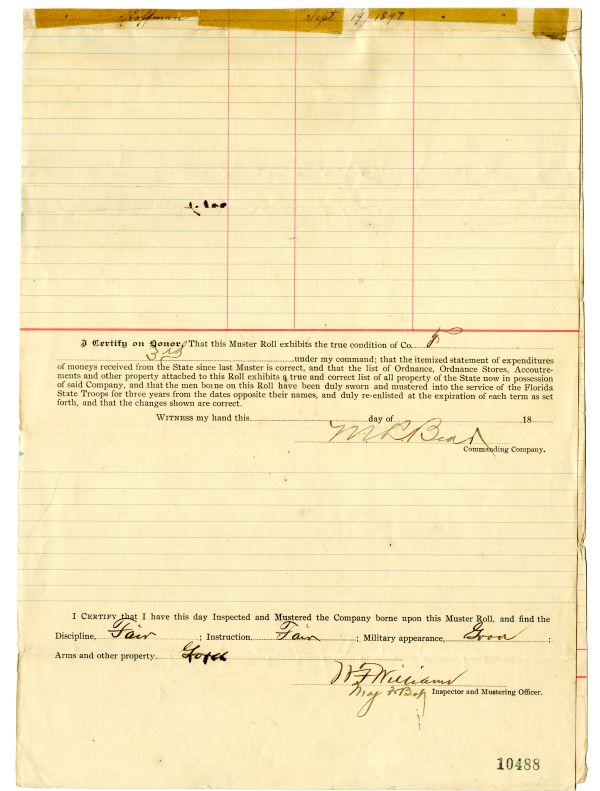 Hoffman Sept 19/1897
I Certify on Honor, That this Muster Roll exhibits the true condition of Co. F
3rd under my command; that the itemized statement of expenditures
of moneys received from the State since last Muster is correct, and that the list of Ordnance, Ordnance Stores, Accoutre-
ments and other property attached to this Roll exhibits a true and correct list of all property of the State now in possession
of said Company, and that the men borne on this Roll have been duly sworn and mustered into the service of the Florida
State Troops for three years from the dates opposite their names, and duly re-enlisted at the expiration of each term as set
forth, and that the changes shown are correct.
WITNESS my hand this day of 18
Commanding Company.
I CERTIFY that I have this day Inspected and Mustered the Company borne upon this Muster Roll, and find the
Discipline, Fair ; Instruction, Fair ; Military appearance, Good ;
Arms and other property
W F Williams
Maj Inspector and Mustering Officer.
10488